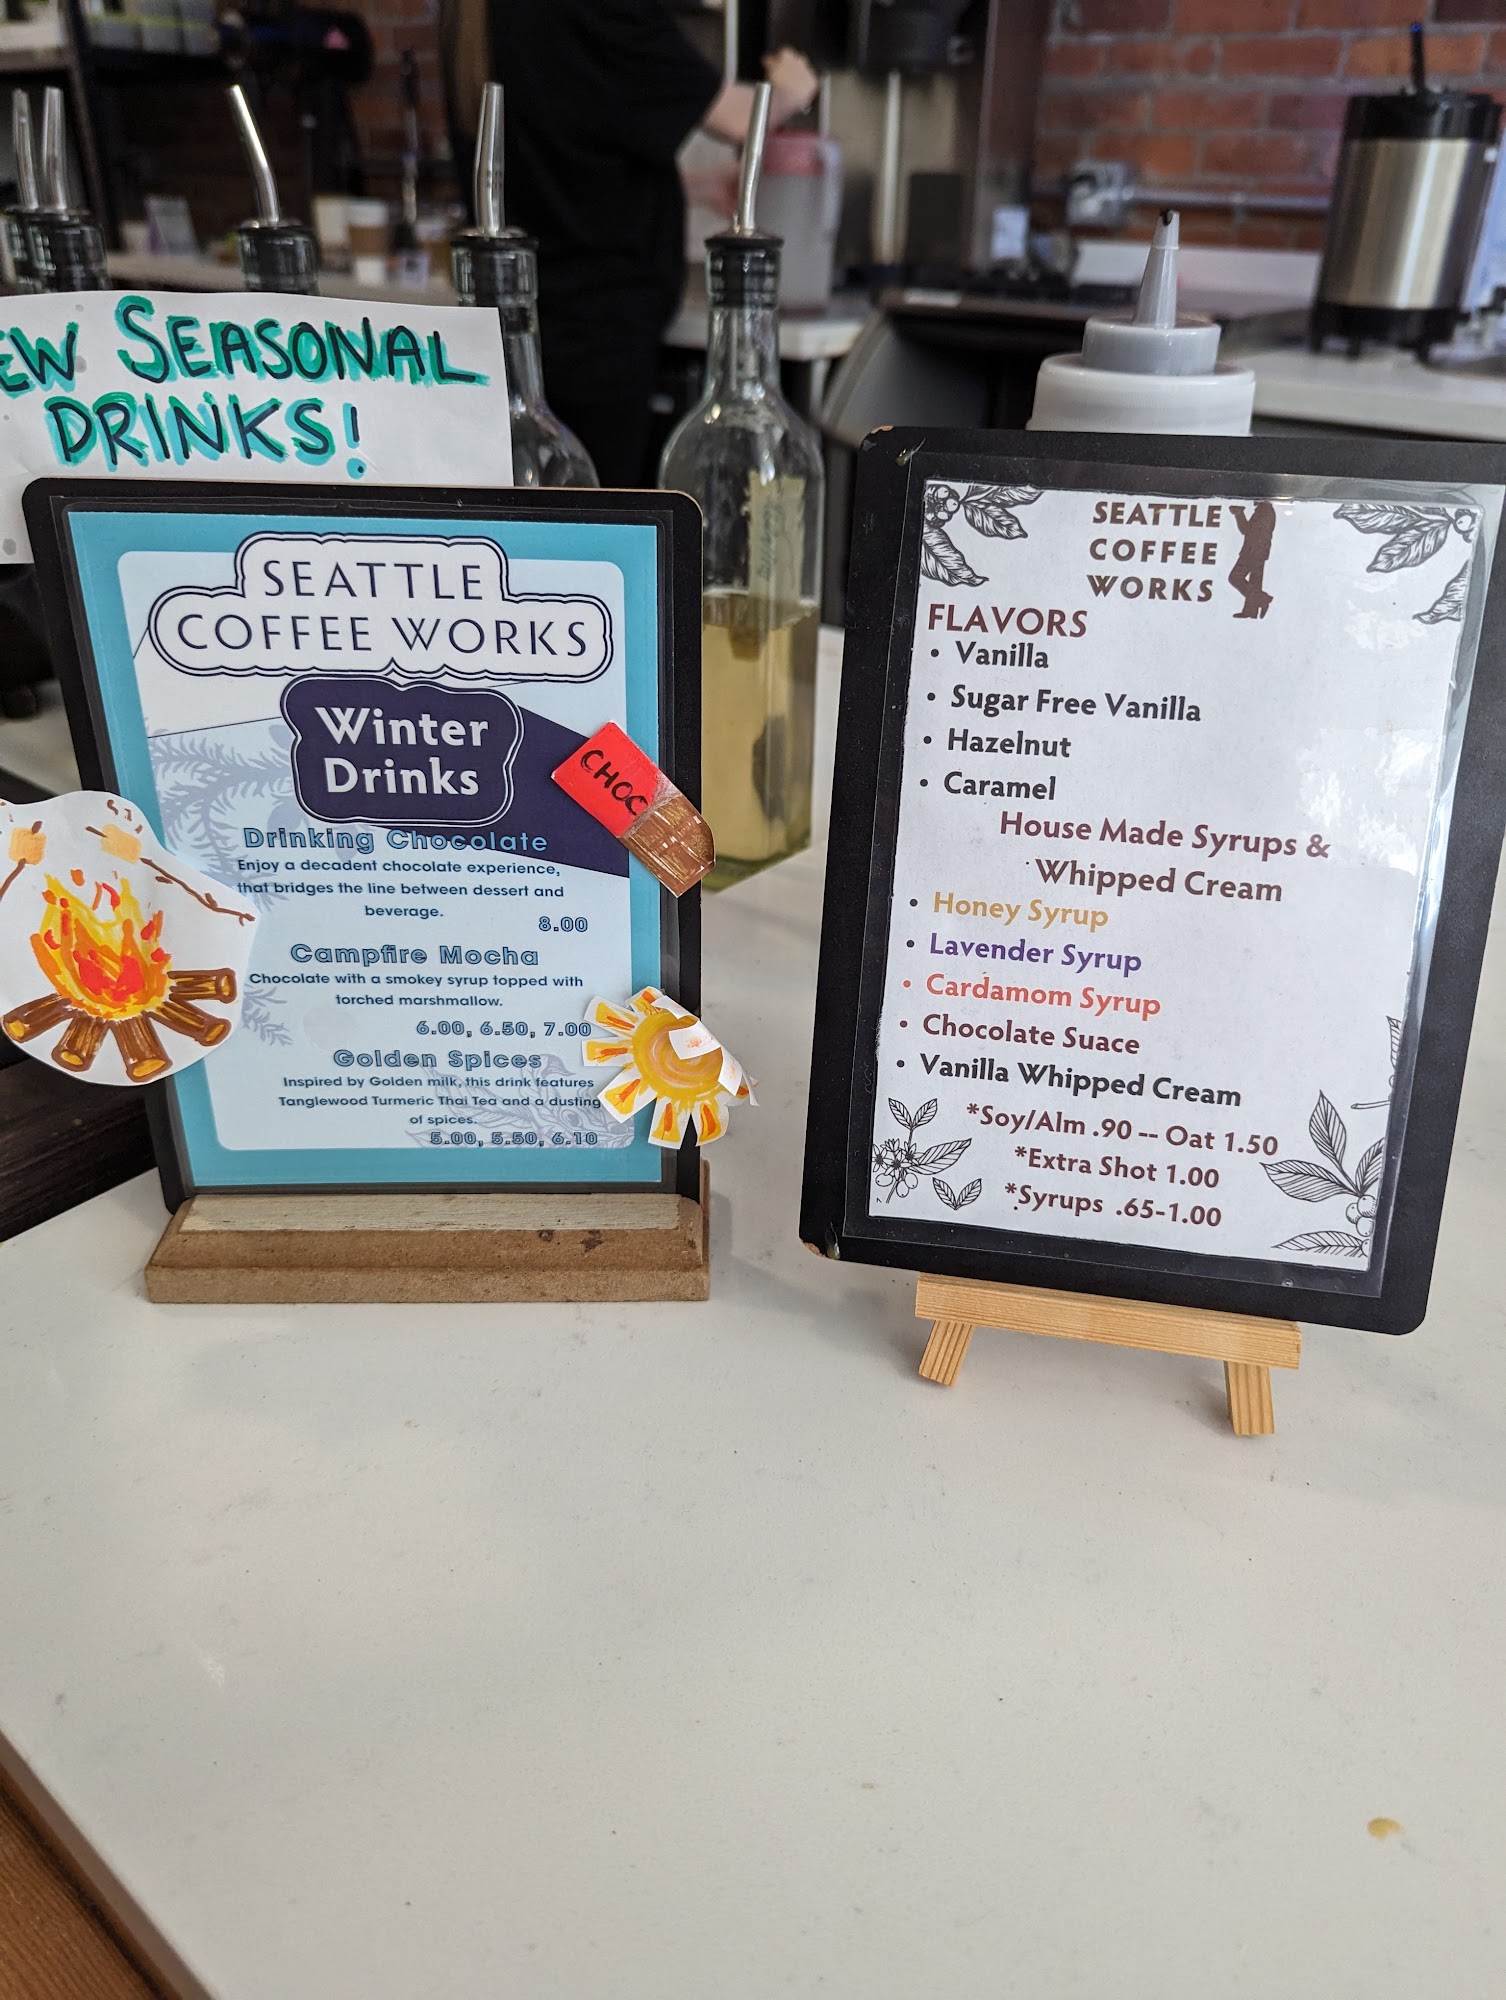 SEASONAL
DRINKS!
SEATTLE
COFFEE WORKS
Winter
Drinks
CHOC
Drinking Chocolate
Enjoy a decadent chocolate experience,
that bridges the line between dessert and
beverage.
8.00
Campfire Mocha
Chocolate with a smokey syrup topped with
torched marshmallow.
6.00, 6.50, 7.00
Golden Spices
Inspired by Golden milk, this drink features
Tanglewood Turmeric Thai Tea and a dusting
of spices.
5.00, 5.50, 6.10
SEATTLE
COFFEE
WORKS
FLAVORS
• Vanilla
• Sugar Free Vanilla
• Hazelnut
• Caramel
House Made Syrups &
Whipped Cream
• Honey Syrup
• Lavender Syrup
• Cardamom Syrup
• Chocolate Suace
• Vanilla Whipped Cream
*Soy/Alm .90 -- Oat 1.50
*Extra Shot 1.00
*Syrups .65-1.00